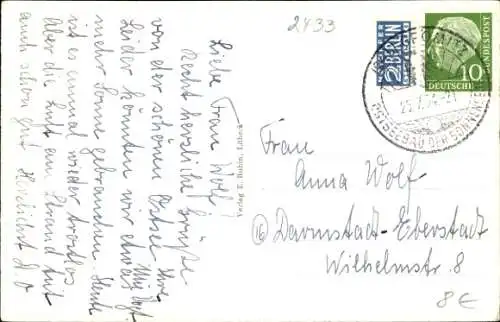 2433
Liebe Frau Wolf!
Recht herzliche Grüße
von der schönen Ostsee Ihre
Leider könnten wir etwas
mehr Sonne gebrauchen. Heute
ist es einmal wieder trostlos
Aber die Luft am Strand tut
auch schon gut Herzlichst D. O
Verlag E. Rubin, Lübeck
NOTOPFER
2 BERLIN
STEUERMARKE
DEUTSCHE BUNDESPOST
10
OSTSEEBAD
Frau
Anna Wolf
16 Darmstadt-Eberstadt
Wilhelmstr. 8
8€